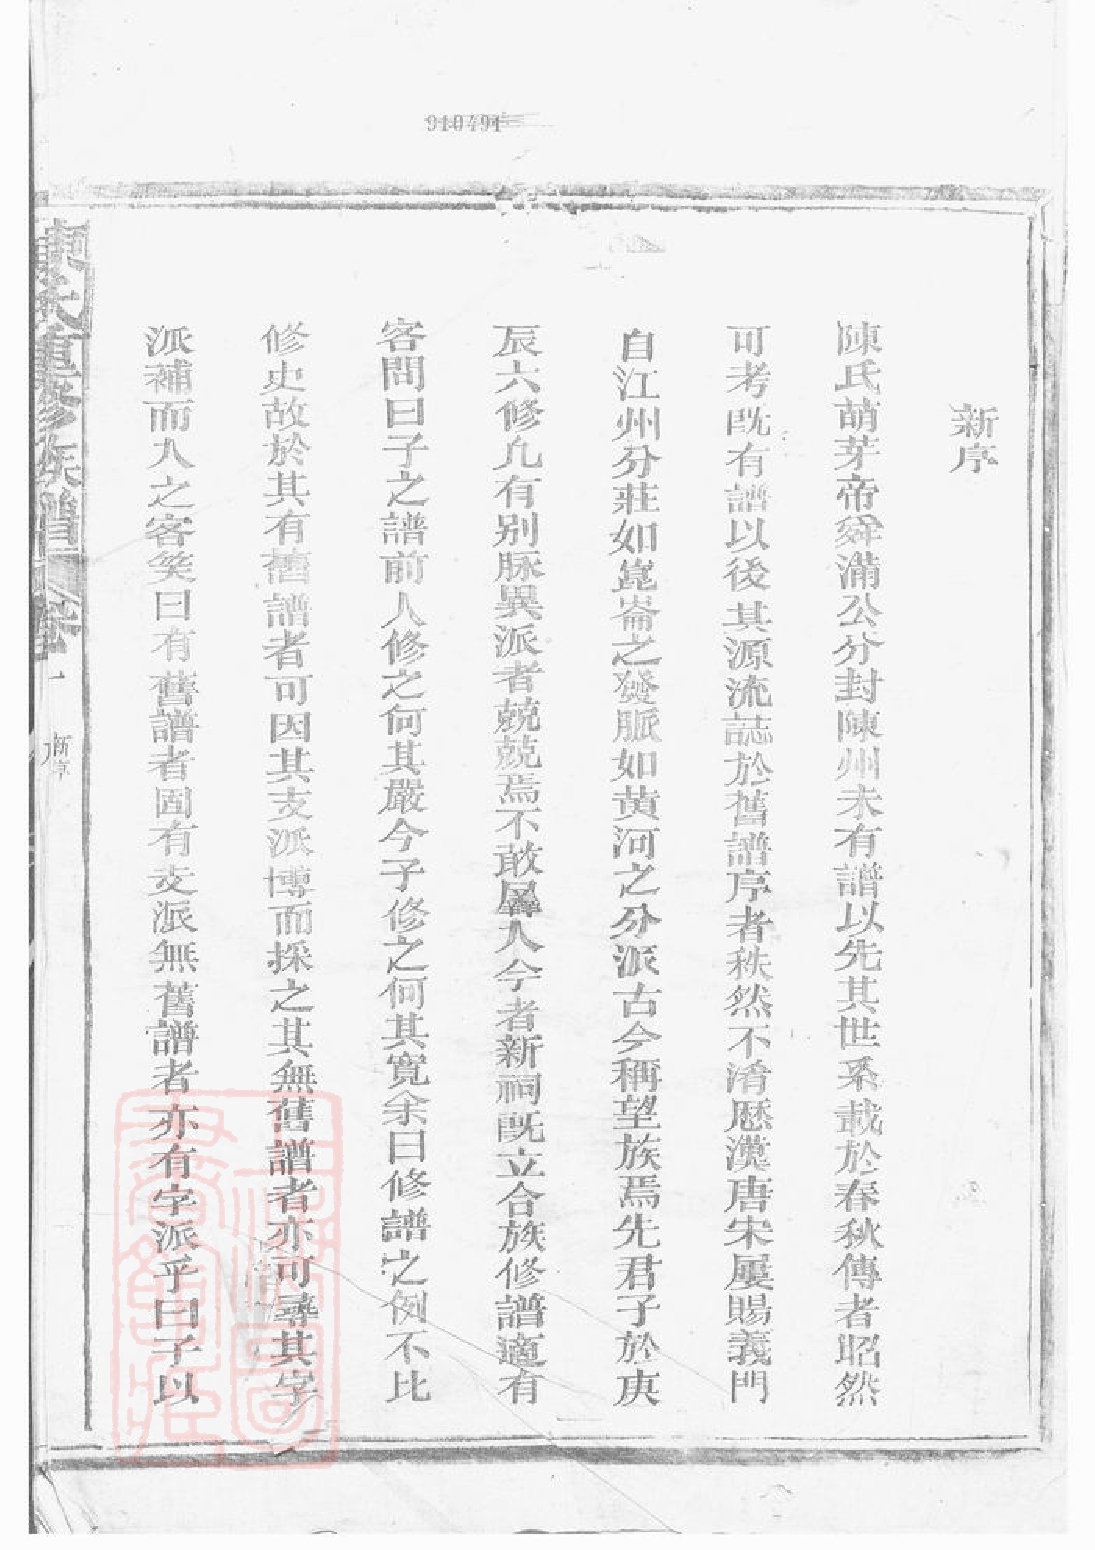 910491
新序
陳氏萌芽帝舜滿公分封陳州未有譜以先其世系載於春秋傳者昭然
可考既有譜以後其源流誌於舊譜序者秩然不淆歷漢唐宋屢賜義門
自江州分莊如崑崙之發脈如黄河之分派古今稱望族焉先君子於庚
辰六修凢有别脉異派者兢兢焉不敢羼入今者新祠既立合族修譜適有
客問曰子之譜前人修之何其嚴今子修之何其寛余曰修譜之例不比
修史故於其有舊譜者可因其支派博而採之其無舊譜者亦可尋其字
派補而入之客笑曰有舊譜者固有支派無舊譜者亦有字派乎曰子以
陳氏重修族譜 卷一 新序